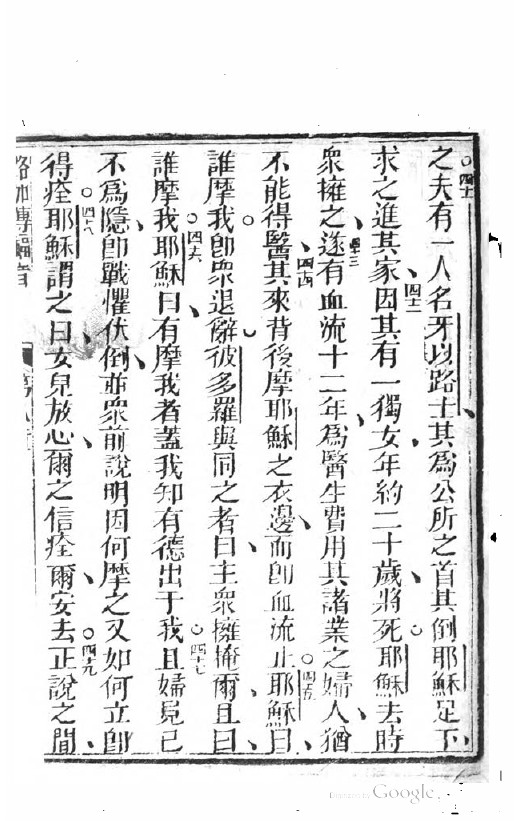 之夫○四十一有一人名牙以路士其爲公所之首其倒耶穌足下
求之進其家四十二因其有一獨女年約二十歲將死耶穌去時
衆擁之四十三遂有血流十二年爲醫生費用其諸業之婦人猶
不能得醫四十四其來背後摩耶穌之衣邊而卽血流止○四十五耶穌曰
誰摩我卽衆退辭彼多羅與同之者曰主衆擁掩爾且曰
誰摩我○四十六耶穌曰有摩我者蓋我知有德出于我○四十七且婦見己
不爲隱卽戰懼伏倒並衆前說明因何摩之又如何立卽
得痊○四十八耶穌謂之曰女兒放心爾之信痊爾安去○四十九正說之間
路加傳福音
Digitized by Google